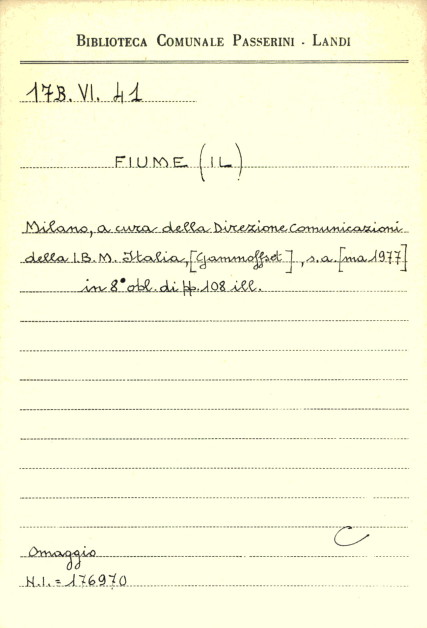 BIBLIOTECA COMUNALE PASSERINI - LANDI
17B. VI. 41
FIUME (IL)
Milano, a cura della Direzione Comunicazioni
della I.B.M. Italia, [Gammoffset], s.a. [ma 1977]
in 8° obl. di pp. 108 ill.
C
Omaggio
N.I. = 176970